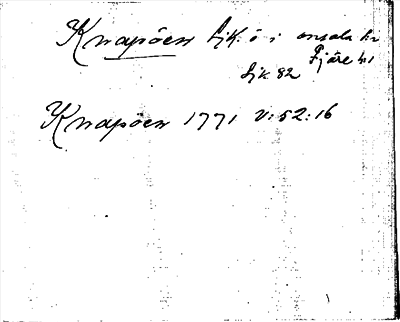 Knapöen Sjk. ö i Onsala sn
Fjäre hd
Sjk 82
Knapöen 1771 V:52:16